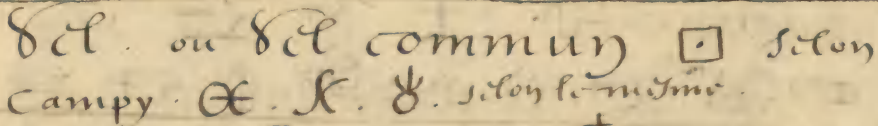 Sel. ou Sel commun ⊡ selon
Campy. . . selon le mesme.